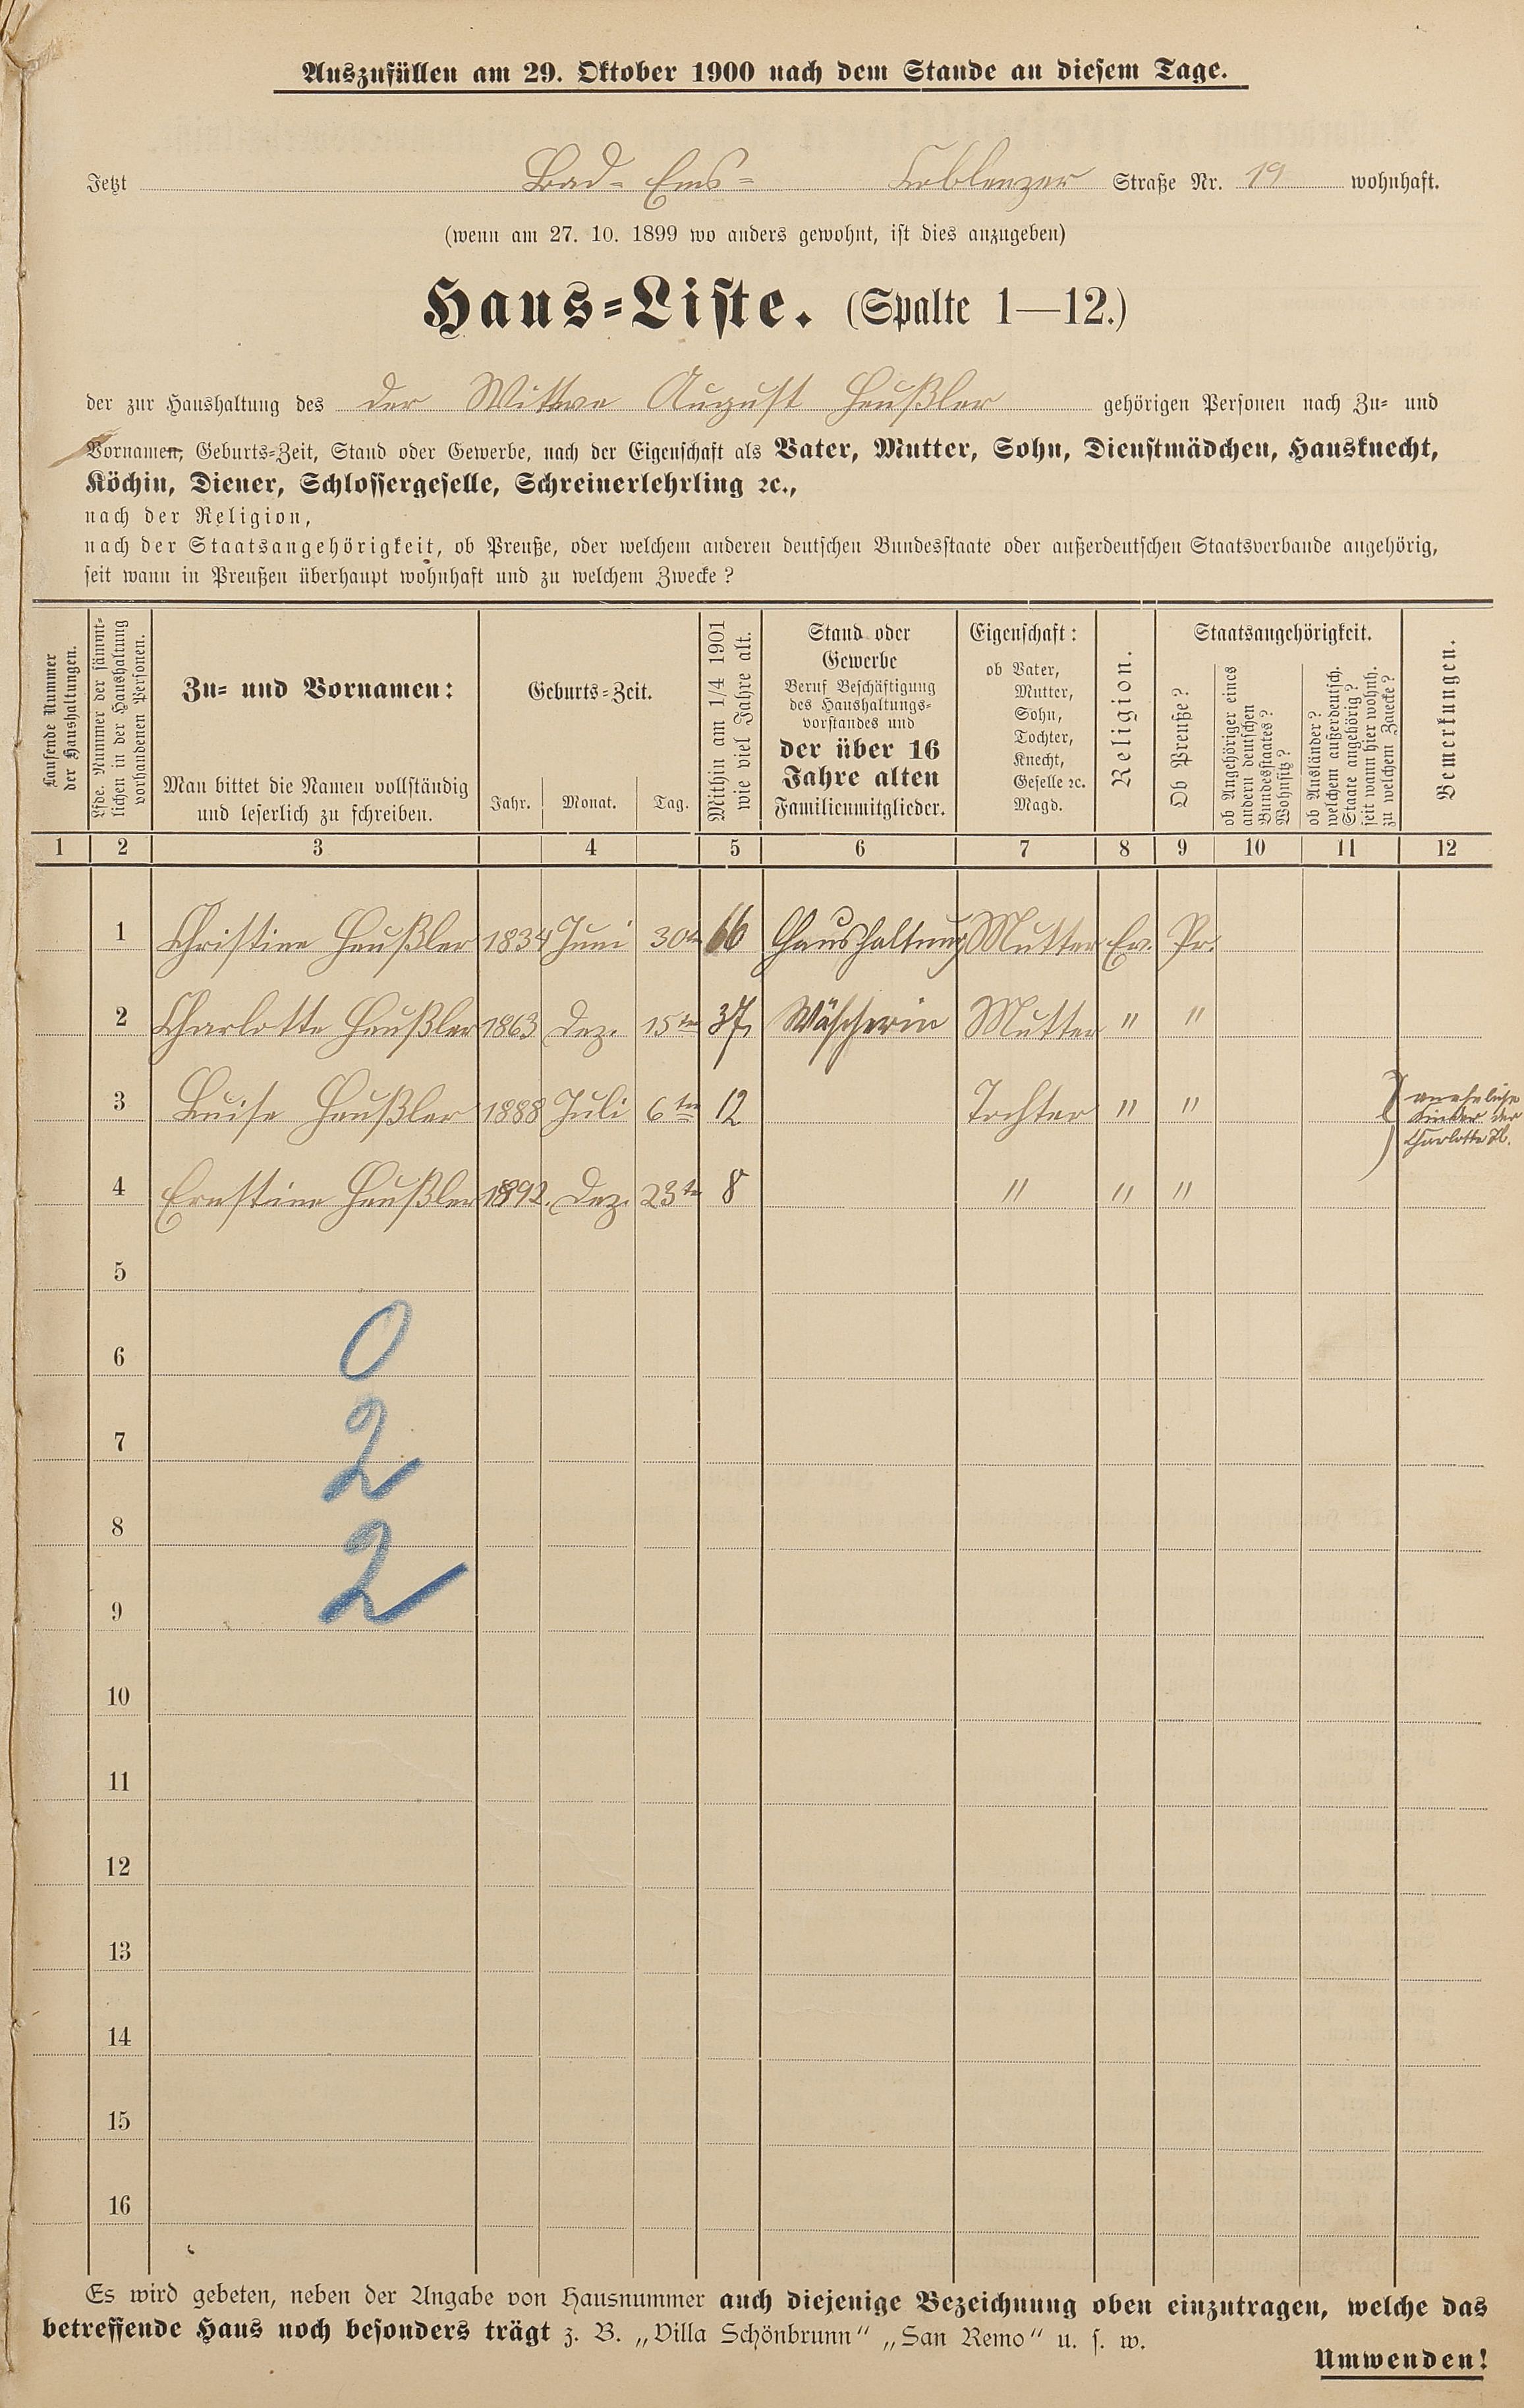 Auszufüllen am 29. Oktober 1900 nach dem Stande an diesem Tage.
Jetzt Bad-Ems- Coblenzer Straße Nr. 19 wohnhaft.
(wenn am 27. 10. 1899 wo anders gewohnt, ist dies anzugeben)
Haus=Liste. (Spalte 1—12.)
der zur Haushaltung des der Wittwe August Heußler gehörigen Personen nach Zu= und
Vornamen, Geburts=Zeit, Stand oder Gewerbe, nach der Eigenschaft als Vater, Mutter, Sohn, Dienstmädchen, Hausknecht,
Köchin, Diener, Schlossergeselle, Schreinerlehrling ꝛc.,
nach der Religion,
nach der Staatsangehörigkeit, ob Preuße, oder welchem anderen deutschen Bundesstaate oder außerdeutschen Staatsverbande angehörig,
seit wann in Preußen überhaupt wohnhaft und zu welchem Zwecke?
Laufende Nummer
der Haushaltungen.
Lfde. Nummer der sämmt-
lichen in der Haushaltung
vorhandenen Personen.
Zu= und Vornamen:
Man bittet die Namen vollständig
und leserlich zu schreiben.
Geburts=Zeit.
Jahr. Monat. Tag.
Mithin am 1/4 1901
wie viel Jahre alt.
Stand oder
Gewerbe
Beruf Beschäftigung
des Haushaltungs-
vorstandes und
der über 16
Jahre alten
Familienmitglieder.
Eigenschaft:
ob Vater,
Mutter,
Sohn,
Tochter,
Knecht,
Geselle ꝛc.
Magd.
Religion.
Staatsangehörigkeit.
Ob Preuße?
ob Angehöriger eines
andern deutschen
Bundesstaates?
Wohnsitz?
ob Ausländer?
welchem außerdeutsch.
Staate angehörig?
seit wann hier wohnh.
zu welchem Zwecke?
Bemerkungen.
1 2 3 4 5 6 7 8 9 10 11 12
1 Christine Heußler 1834 Juni 30ten 66 Haushaltung Mutter Ev. Pr.
2 Charlotte Heußler 1863 Dez. 15ten 37 Wäscherin Mutter " "
3 Luise Heußler 1888 Juli 6ten 12 Tochter " "
uneheliche
Kinder der
Charlotte H.
4 Ernstine Heußler 1892. Dez. 23te 8 " " "
5
6 0
7 2
8
9 2
10
11
12
13
14
15
16
Es wird gebeten, neben der Angabe von Hausnummer auch diejenige Bezeichnung oben einzutragen, welche das
betreffende Haus noch besonders trägt z. B. „Villa Schönbrunn" „San Remo" u. s. w.
Umwenden!